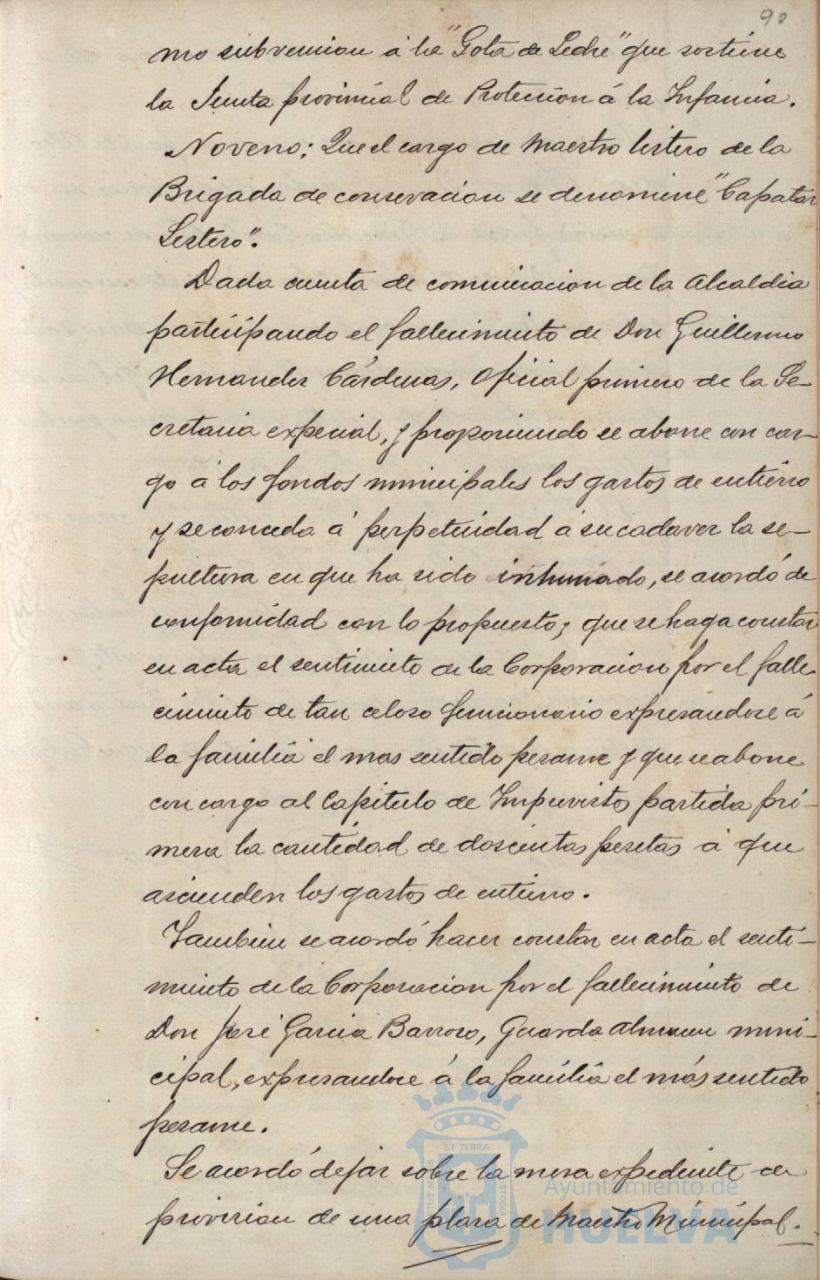 90
mo subvencion á la "Gota de Leche" que sostiene
la Junta provincial de Proteccion á la Infancia.
Noveno: Que el cargo de Maestro listero de la
Brigada de conservacion se denomine "Capataz
Listero".
Dada cuenta de comunicacion de la Alcaldia
participando el fallecimiento de Don Guillermo
Hernandez Cárdenas, Oficial primero de la Se-
cretaria especial, y proponiendo se abone con car-
go á los fondos municipales los gastos de entierro
y se conceda á perpetuidad á su cadaver la se-
pultura en que ha sido inhumado, se acordó de
conformidad con lo propuesto; que se haga constar
en acta el sentimiento de la Corporacion por el falle-
cimiento de tan celoso funcionario expresandose á
la familia el mas sentido pesame y que se abone
con cargo al Capitulo de Imprevistos partida pri-
mera la cantidad de doscientas pesetas á que
ascienden los gastos de entierro.
Tambien se acordó hacer constar en acta el senti-
miento de la Corporacion por el fallecimiento de
Don José Garcia Barroso, Guarda Almacen muni-
cipal, expresandose á la familia el más sentido
pesame.
Se acordó dejar sobre la mesa expediente de
provision de una plaza de Maestro Municipal.
Ayuntamiento de
HUELVA